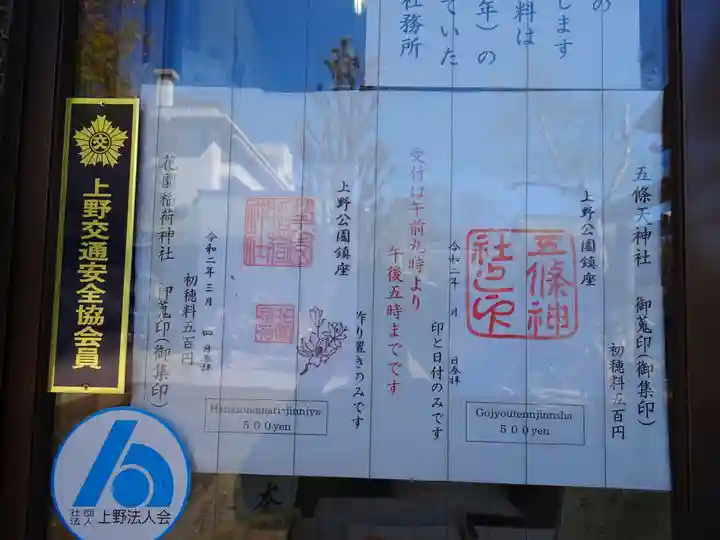 の
します
料は
年）の
ていた
社務所
五條天神社　御蒐印(御集印)
初穂料五百円
上野公園鎮座
五條神
社之印
令和二年　月　日参拝
印と日付のみです
Gojyoutennjinnsha
５００yen
受付は午前九時より
午後五時までです
花園稲荷神社　御蒐印(御集印)
初穂料五百円
上野公園鎮座
令和二年三月　四日参拝
作り置きのみです
Hanazonoinari-jinnjya
５００yen
交
上野交通安全協会員
社団
法人
上野法人会
本